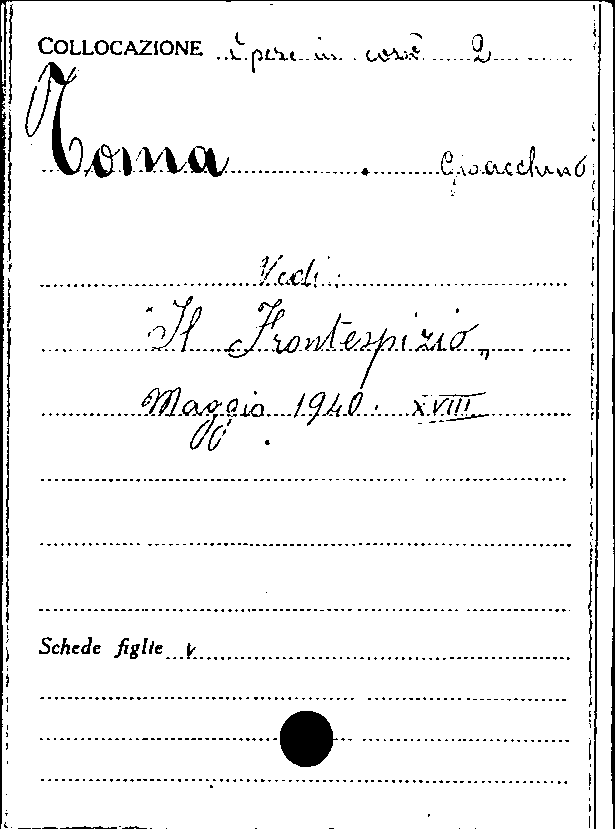 COLLOCAZIONE Opere in corso 2
Toma . Gioacchino
Vedi:
"Il Frontespizio„
Maggio 1940. XVIII.
Schede figlie v